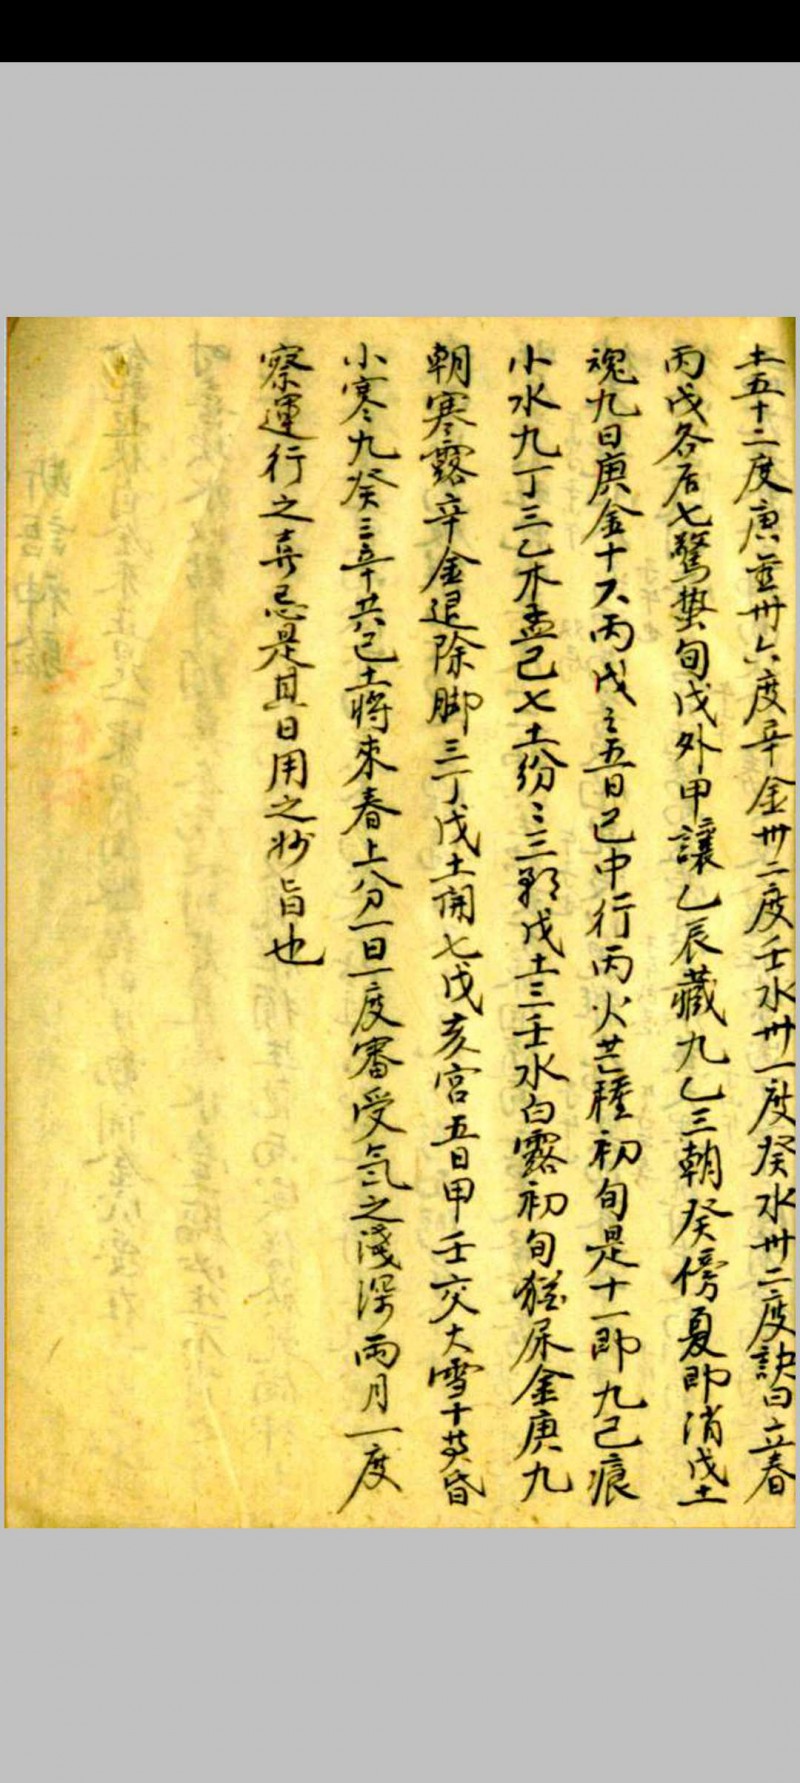 土五十二度庚金卅六度辛金卅二度壬水卅一度癸水卅二度訣曰立春
丙戊各居七驚蟄旬戊外甲讓乙辰藏九乙三朝癸傍夏即消戊土
魂九日庚金十六丙戊之五日已中行丙火芒種初旬是十一即九己痕
小水九丁三乙木孟己七土紛〻三戊土三壬水白露初旬金庚九
朝寒露辛金退除脚三丁戊土開七戊亥宮五日甲壬交大雪十其昏
小寒九癸三辛共己土將來春上分一日一度審受氣之淺深兩月一度
察運行之喜忌是其日用之妙旨也